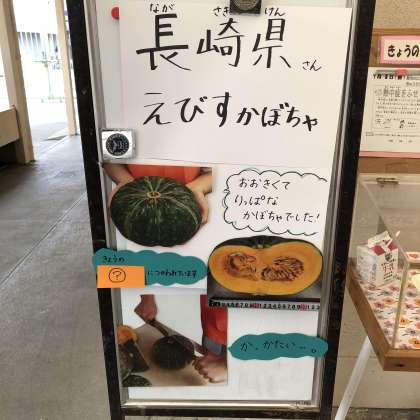 ながさきけん
長崎県さん
えびすかぼちゃ
おおきくて
りっぱな
かぼちゃでした!
きょうの
?につかわれています
か、かたい…。
きょうの